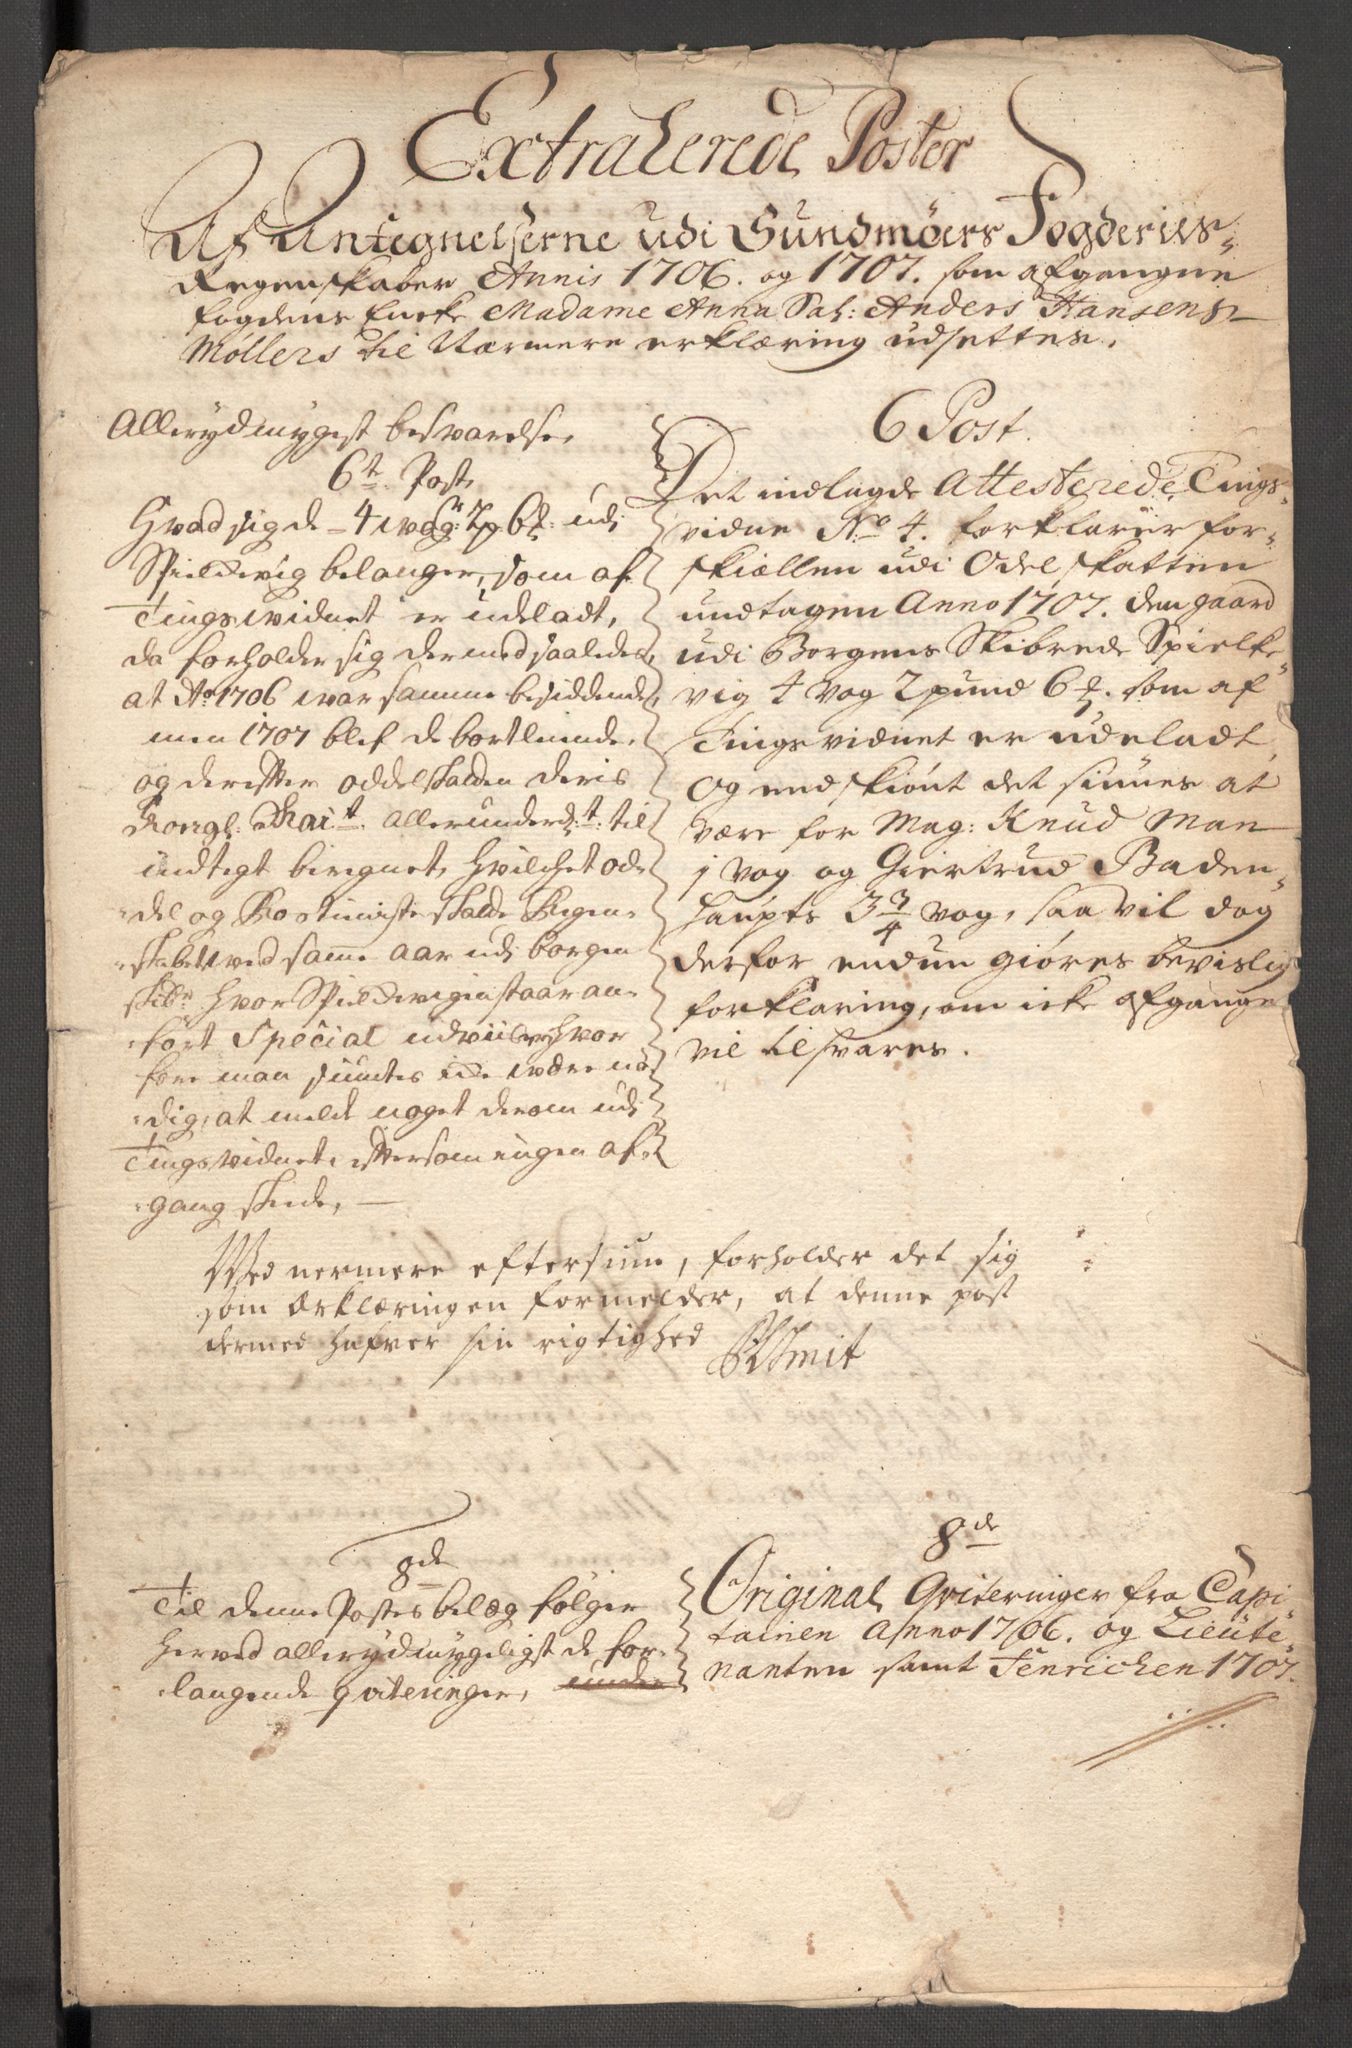 Extraherede Poster
Af Antegnelserne udi Sundmöers Fogderies
Regenskaber Annis 1706. og 1707. som afgangne
fogdens Encke Madame Anna Sal: Anders Hansens
Møllers til Nærmere erklæring udsettes.
Allerydmygst besvarelse,
6t. Post,
Hvad sig de 4 wog: 2 p 6  udj
Spieldevig belanger, som af
Tingswidnet er udeladt,
da forholder sig dermed saaledes,
at Ao. 1706 war samme besiddende,
men 1707 blef de bortleinde,
og derefter oddel skatden deris
Kongl: Mait. allerunderd:t: til
indtegt beregnet, hvilchet od-
del og Rostieniste skatte Regen-
skabet ved samme aar udj borgen
skibr: hvor Spieldevigen staar an-
fört Special udviiser, hvor
fore man syuntes icke wære nö-
dig, at melde noget derom udj
Tingswidnet, eftersom ingen af-
gang skeede,
6 Post.
Det indlagde Attesterede Tings-
vidne No 4. forklarer for-
skiællen udi Odel skatten
undtagen Anno 1707. den gaard
udi Borgens Skibrede Spielke-
vig 4 vog 2 pund 6 . som af
Tingsvidnet er udeladt,
Og endskiönt det siunes at
være for Mag: Knud Man
1 vog og Giertrud Baden-
haupts 3 3/4 vog, saa vil dog
derfor endnu giøres bevislig
forklaring, om icke afgange
vil tilsvares.
Wed nermere eftersiun, forholder det sig
som Erklæringen formelder, at denne post
dermed hafver sin rigtighed Smit
8de
Til denne Postes belæg følger
herved allerydmygeligst de for-
langende qviteringer,
8de
Original Qviteringer fra Capi-
tainen Anno 1706. og Lieute-
nanten samt Fenrichen 1707.